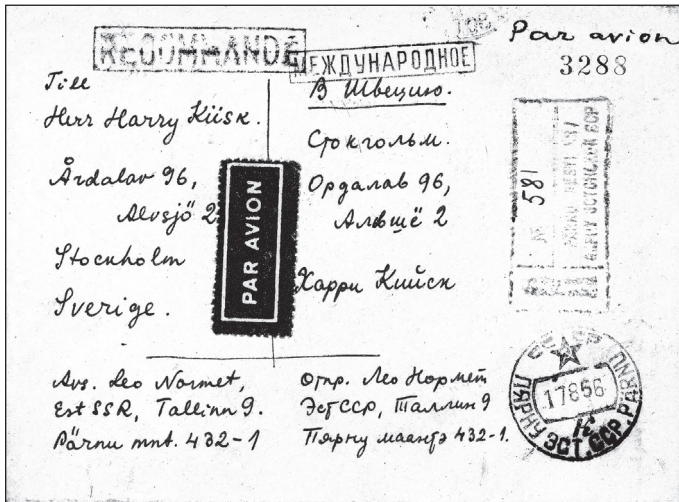 RECOMMANDÉ
МЕЖДУНАРОДНОЕ
Par avion
3288
Till
Herr Harry Kiisk.
Årdalav 96,
Älvsjö 2
Stockholm
Sverige.
PAR AVION
В Швецию.
Стокгольм.
Ордалав 96,
Альвшё 2
Харри Кийск
№ 581
PÄRNU EESTI
ПЯРНУ ЭСТОНСКОЙ ССР
Avs. Leo Normet,
Est SSR, Tallinn 9.
Pärnu mnt. 432-1
Отпр. Лео Нормет
ЭстССР, Таллин 9
Пярну маантэ 432-1.
ПЯРНУ ЭСТ. ССР. PÄRNU
17856